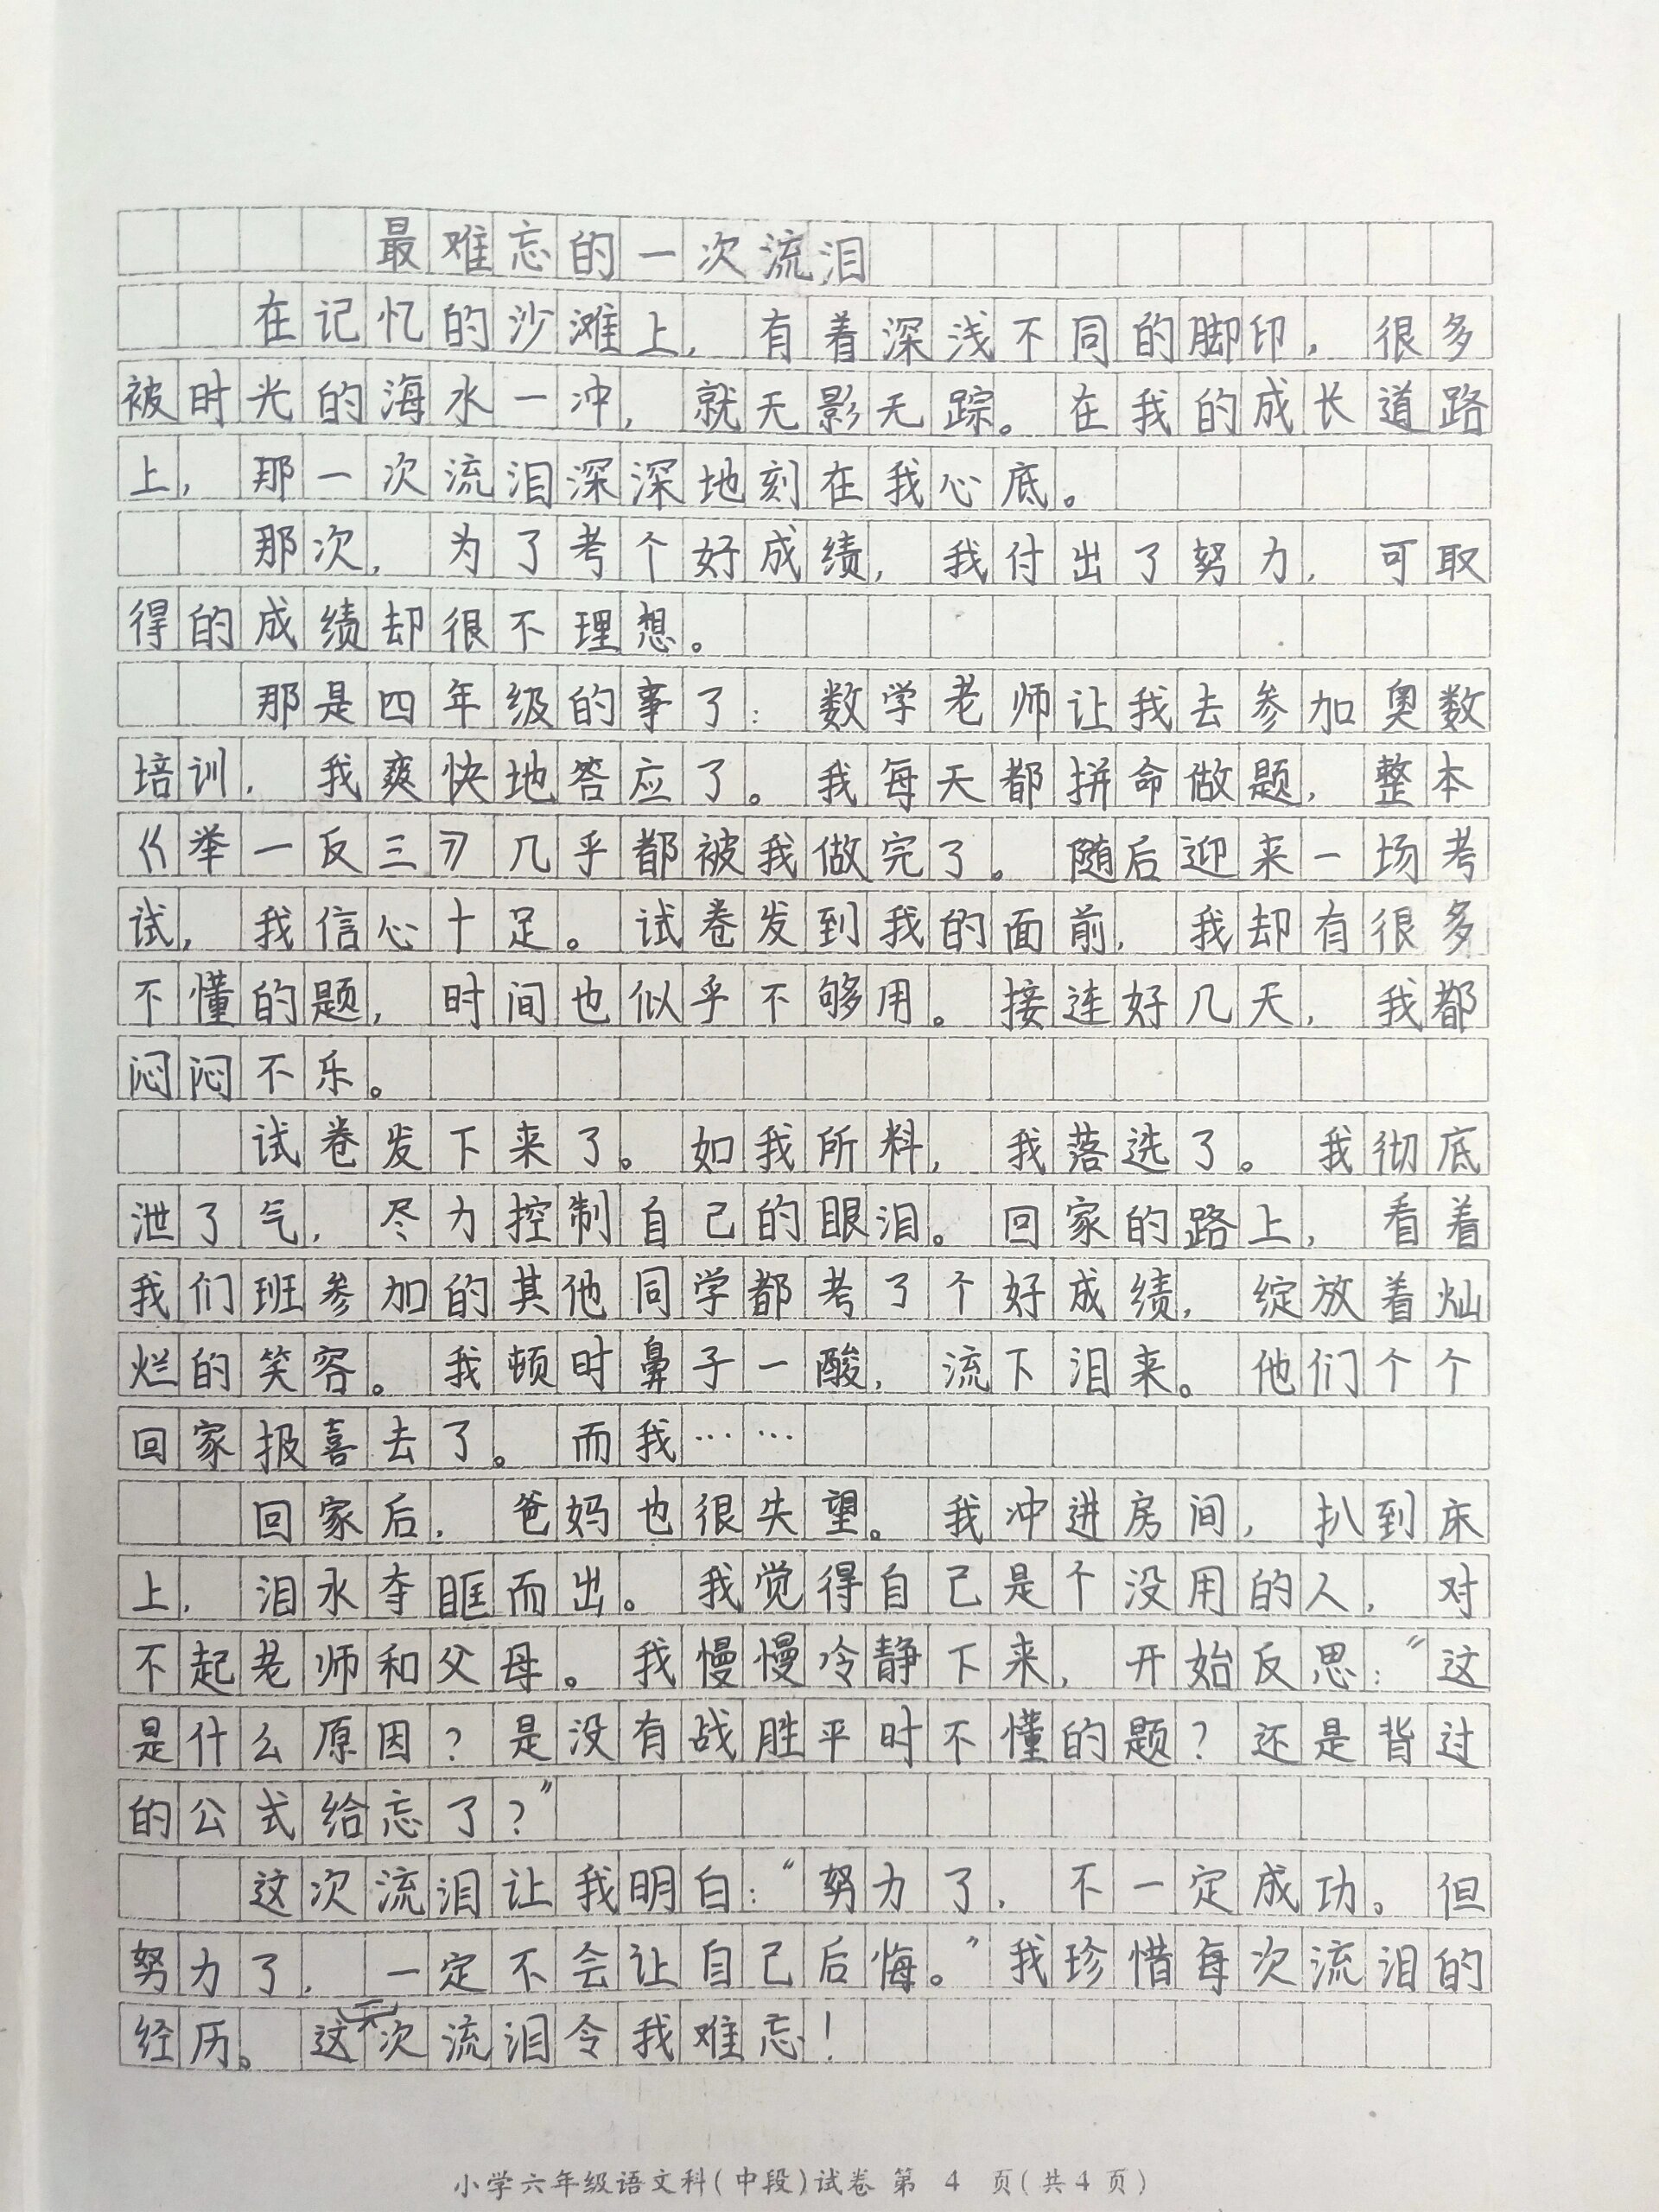 最难忘的一次流泪
在记忆的沙滩上，有着深浅不同的脚印，很多
被时光的海水一冲，就无影无踪。在我的成长道路
上，那一次流泪深深地刻在我心底。
那次，为了考个好成绩，我付出了努力，可取
得的成绩却很不理想。
那是四年级的事了：数学老师让我去参加奥数
培训，我爽快地答应了。我每天都拼命做题，整本
《举一反三》几乎都被我做完了。随后迎来一场考
试，我信心十足。试卷发到我的面前，我却有很多
不懂的题，时间也似乎不够用。接连好几天，我都
闷闷不乐。
试卷发下来了。如我所料，我落选了。我彻底
泄了气，尽力控制自己的眼泪。回家的路上，看着
我们班参加的其他同学都考了个好成绩，绽放着灿
烂的笑容。我顿时鼻子一酸，流下泪来。他们个个
回家报喜去了。而我……
回家后，爸妈也很失望。我冲进房间，扒到床
上，泪水夺眶而出。我觉得自己是个没用的人，对
不起老师和父母。我慢慢冷静下来，开始反思：“这
是什么原因？是没有战胜平时不懂的题？还是背过
的公式给忘了？”
这次流泪让我明白：“努力了，不一定成功。但
努力了，一定不会让自己后悔。”我珍惜每次流泪的
经历。这次流泪令我难忘！
小学六年级语文科(中段)试卷 第 4 页(共4页)